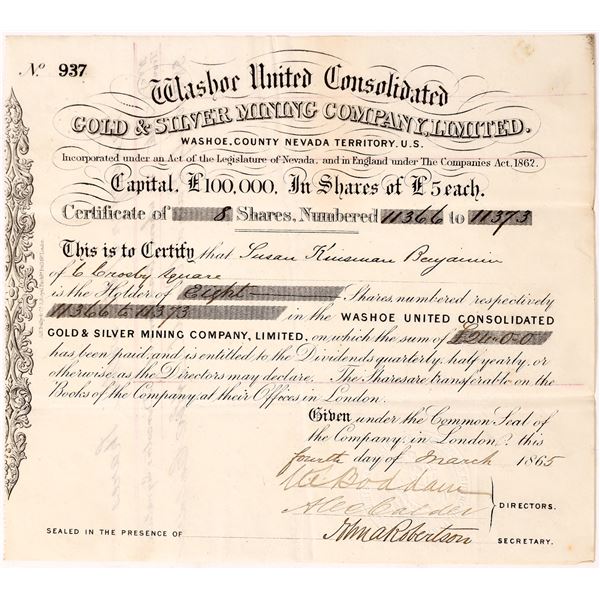 No. 937
Washoe United Consolidated
GOLD & SILVER MINING COMPANY, LIMITED.
WASHOE, COUNTY NEVADA TERRITORY. U.S.
Incorporated under an Act of the Legislature of Nevada, and in England under The Companies Act, 1862.
Capital, £100,000, In Shares of £5 each.
Certificate of 8 Shares, Numbered 11366 to 11373
This is to Certify that Susan Kinsman Benjamin
of 6 Crosby Square
is the Holder of Eight Shares, numbered respectively
11366 to 11373 in the WASHOE UNITED CONSOLIDATED
GOLD & SILVER MINING COMPANY, LIMITED, on which the sum of
has been paid, and is entitled to the Dividends quarterly, half yearly, or
otherwise as the Directors may declare. The Shares are transferable on the
Books of the Company, at their Offices in London.
Given under the Common Seal of
the Company, in London, this
fourth day of March 1865
DIRECTORS.
John A Robertson
SECRETARY.
SEALED IN THE PRESENCE OF